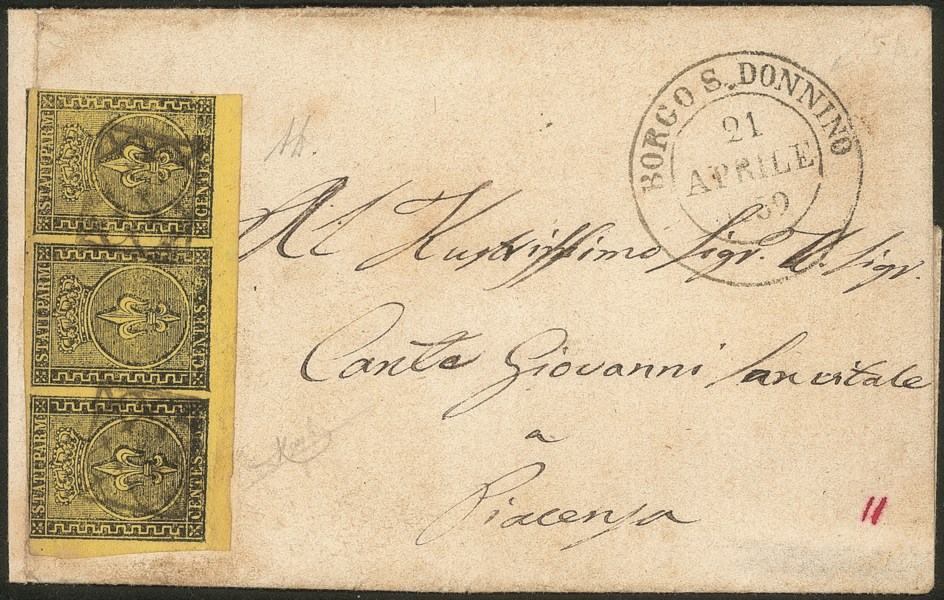 STATI PARM
CENTES. 5
STATI PARM
CENTES. 5
STATI PARM
CENTES. 5
BORGO S. DONNINO
21
APRILE
59
Al Illustrissimo Sigr. D. Sigr.
Conte Giovanni Sanvitale
a
Piacenza
11